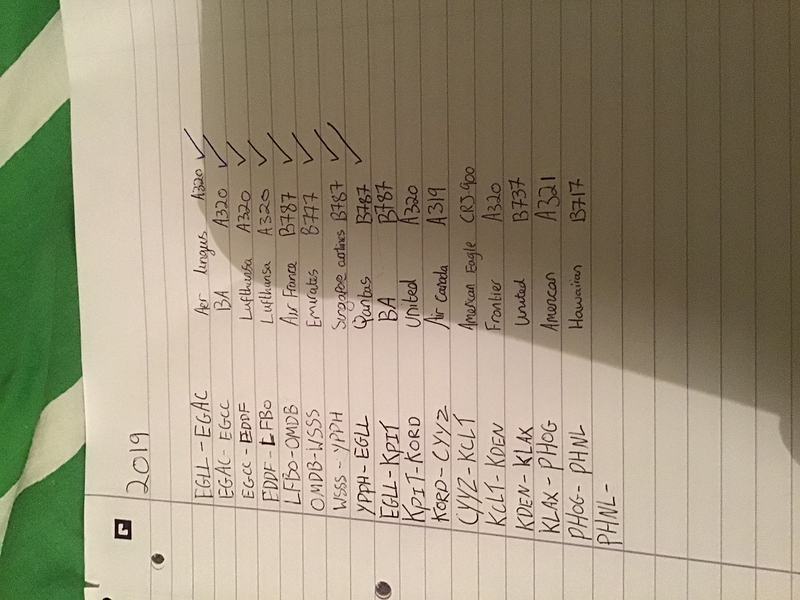 2019
EGLL - EGAC Aer lingus A320 ✓
EGAC - EGCC BA A320 ✓
EGCC - EDDF Lufthansa A320 ✓
EDDF - LFBO Lufthansa A320 ✓
LFBO - OMDB Air France B787 ✓
OMDB - WSSS Emirates B777 ✓
WSSS - YPPH Singapore airlines B787 ✓
YPPH - EGLL Qantas B787 ✓
EGLL - KPIT BA B787
KPIT - KORD United A320
KORD - CYYZ Air Canada A319
CYYZ - KCLT American Eagle CRJ-900
KCLT - KDEN Frontier A320
KDEN - KLAX United B737
KLAX - PHOG American A321
PHOG - PHNL Hawaiian B717
PHNL -